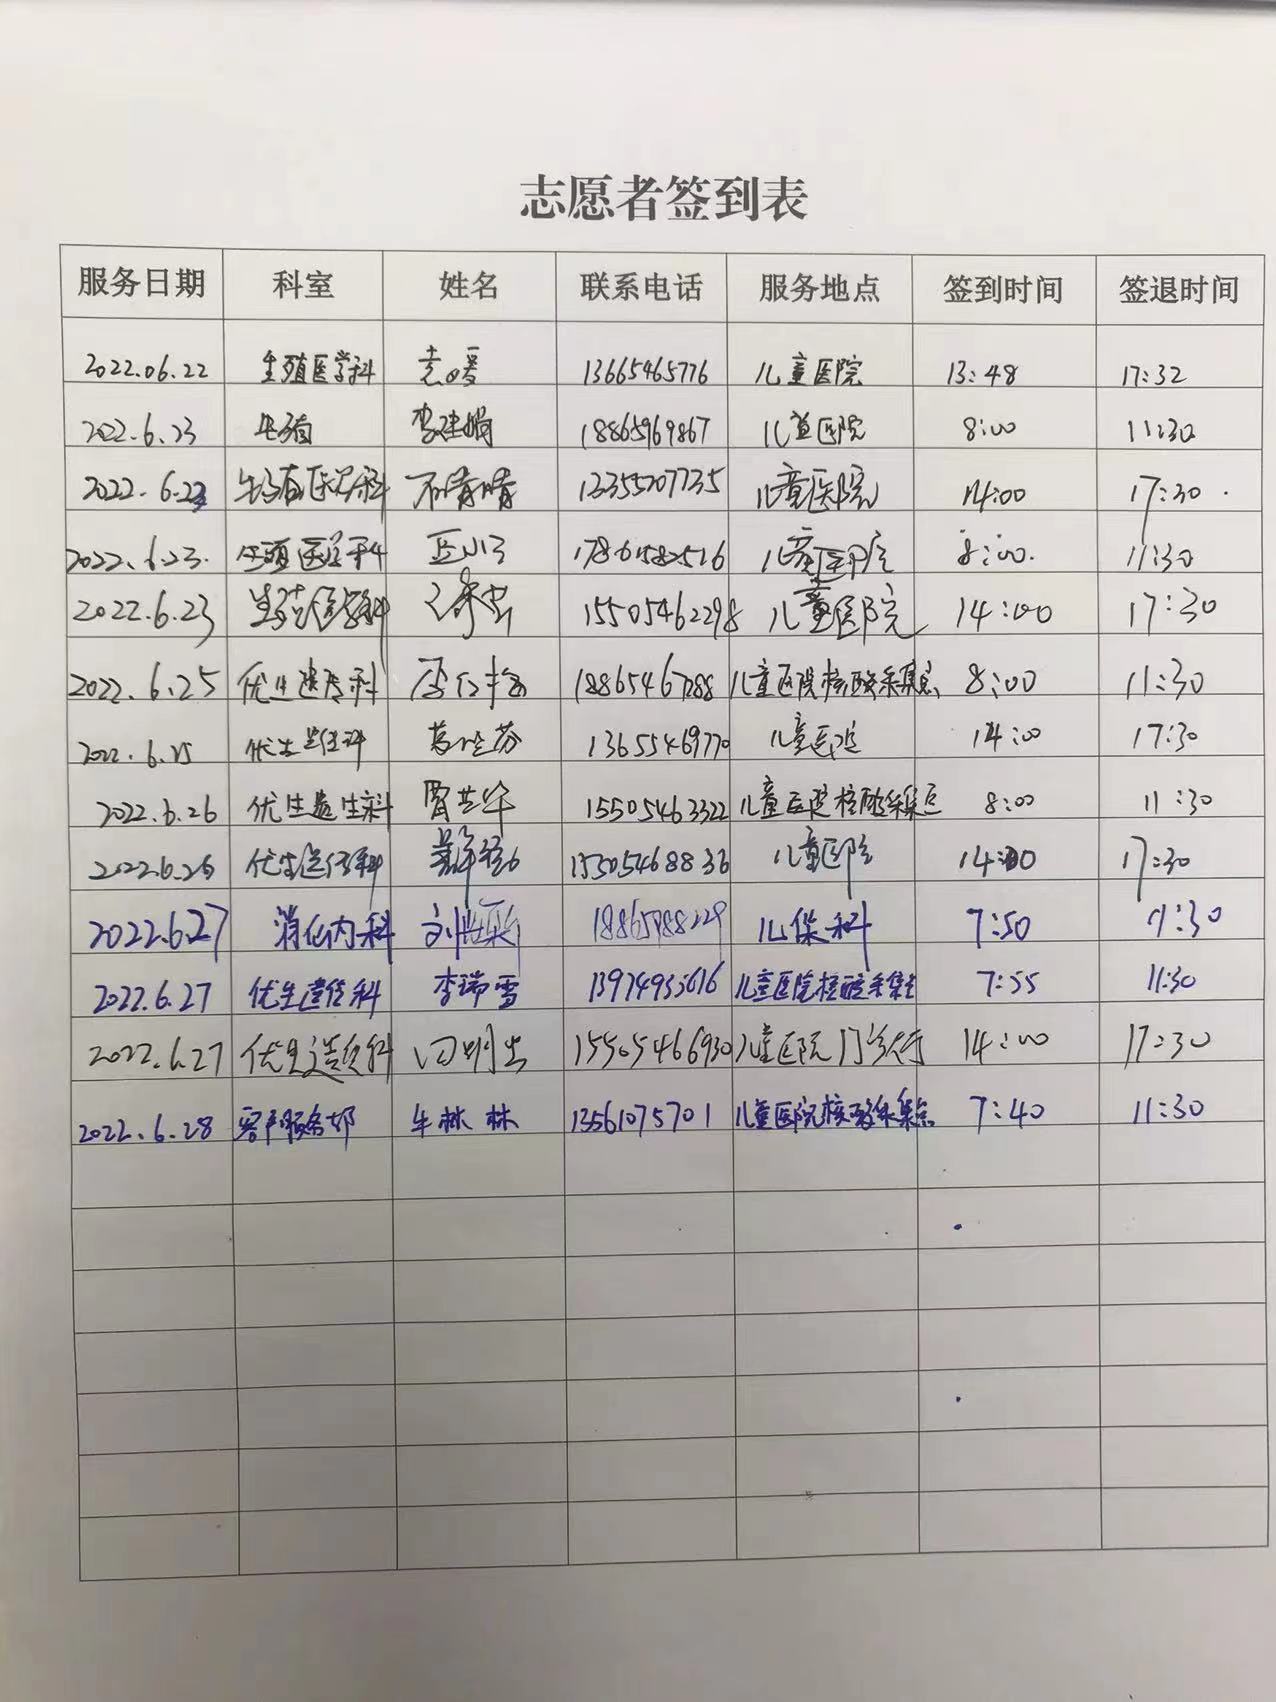 志愿者签到表
服务日期 科室 姓名 联系电话 服务地点 签到时间 签退时间
2022.06.22 生殖医学科 袁暖 13665465776 儿童医院 13:48 17:32
2022.6.23 生殖 李建娟 18865969867 儿童医院 8:00 11:30
2022.6.23 生殖医学科 晴晴 13355207735 儿童医院 14:00 17:30
2022.6.23. 生殖医学科 儿童医院 8:00. 11:30
2022.6.23 生殖医学科 15505462298 儿童医院 14:00 17:30
2022.6.25 优生遗传科 儿童医院核酸采集点 8:00 11:30
2022.6.25 优生遗传科 13655469770 儿童医院 14:00 17:30
2022.6.26 优生遗传科 贾芸华 15505463322 儿童医院核酸采集点 8:00 11:30
2022.6.26 优生遗传科 15505468836 儿童医院 14:00 17:30
2022.6.27 消化内科 18865988229 儿保科 7:50 11:30
2022.6.27 优生遗传科 李瑞雪 儿童医院核酸采集点 7:55 11:30
2022.6.27 优生遗传科 15505466930 儿童医院门诊大厅 14:00 17:30
2022.6.28 客户服务部 牛林林 13561075701 儿童医院核酸采集点 7:40 11:30